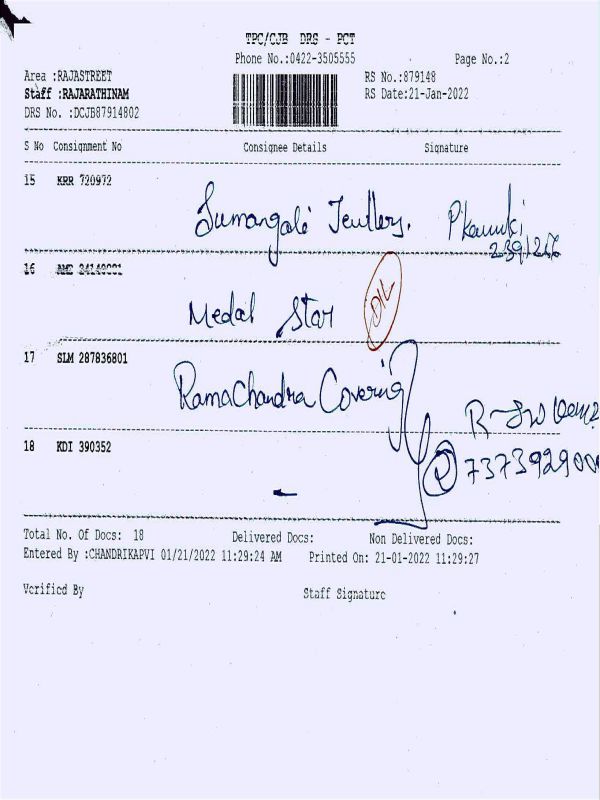 TPC/CJB DRS - PCT
Phone No.:0422-3505555 Page No.:2
Area :RAJASTREET RS No.:879148
Staff :RAJARATHINAM RS Date:21-Jan-2022
DRS No. :DCJB87914802
S No Consignment No Consignee Details Signature
15 KRR 720972
Sumangali Jewllery.
16
Medal Star
17 SLM 287836801
RamaChandra Covering
18 KDI 390352
Total No. Of Docs: 18 Delivered Docs: Non Delivered Docs:
Entered By :CHANDRIKAPVI 01/21/2022 11:29:24 AM Printed On: 21-01-2022 11:29:27
Verified By Staff Signature